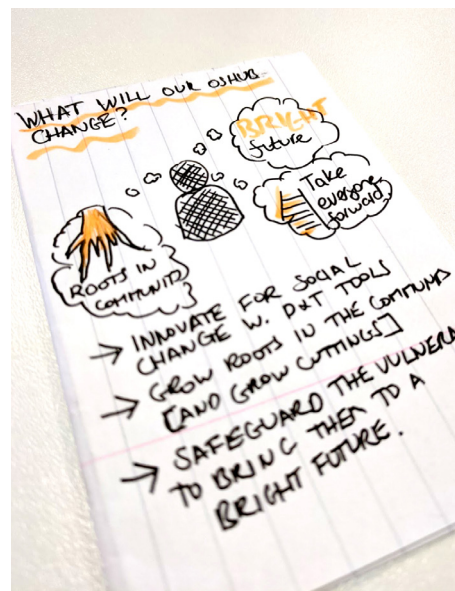 WHAT WILL OUR OSHUB
CHANGE?
BRIGHT
future
Take
everyone
forward
ROOTS IN
COMMUNITY
→ INNOVATE FOR SOCIAL
CHANGE W. D&T TOOLS
→ GROW ROOTS IN THE
[AND GROW CUTTINGS]
→ SAFEGUARD THE
TO BRING THEM TO A
BRIGHT FUTURE.